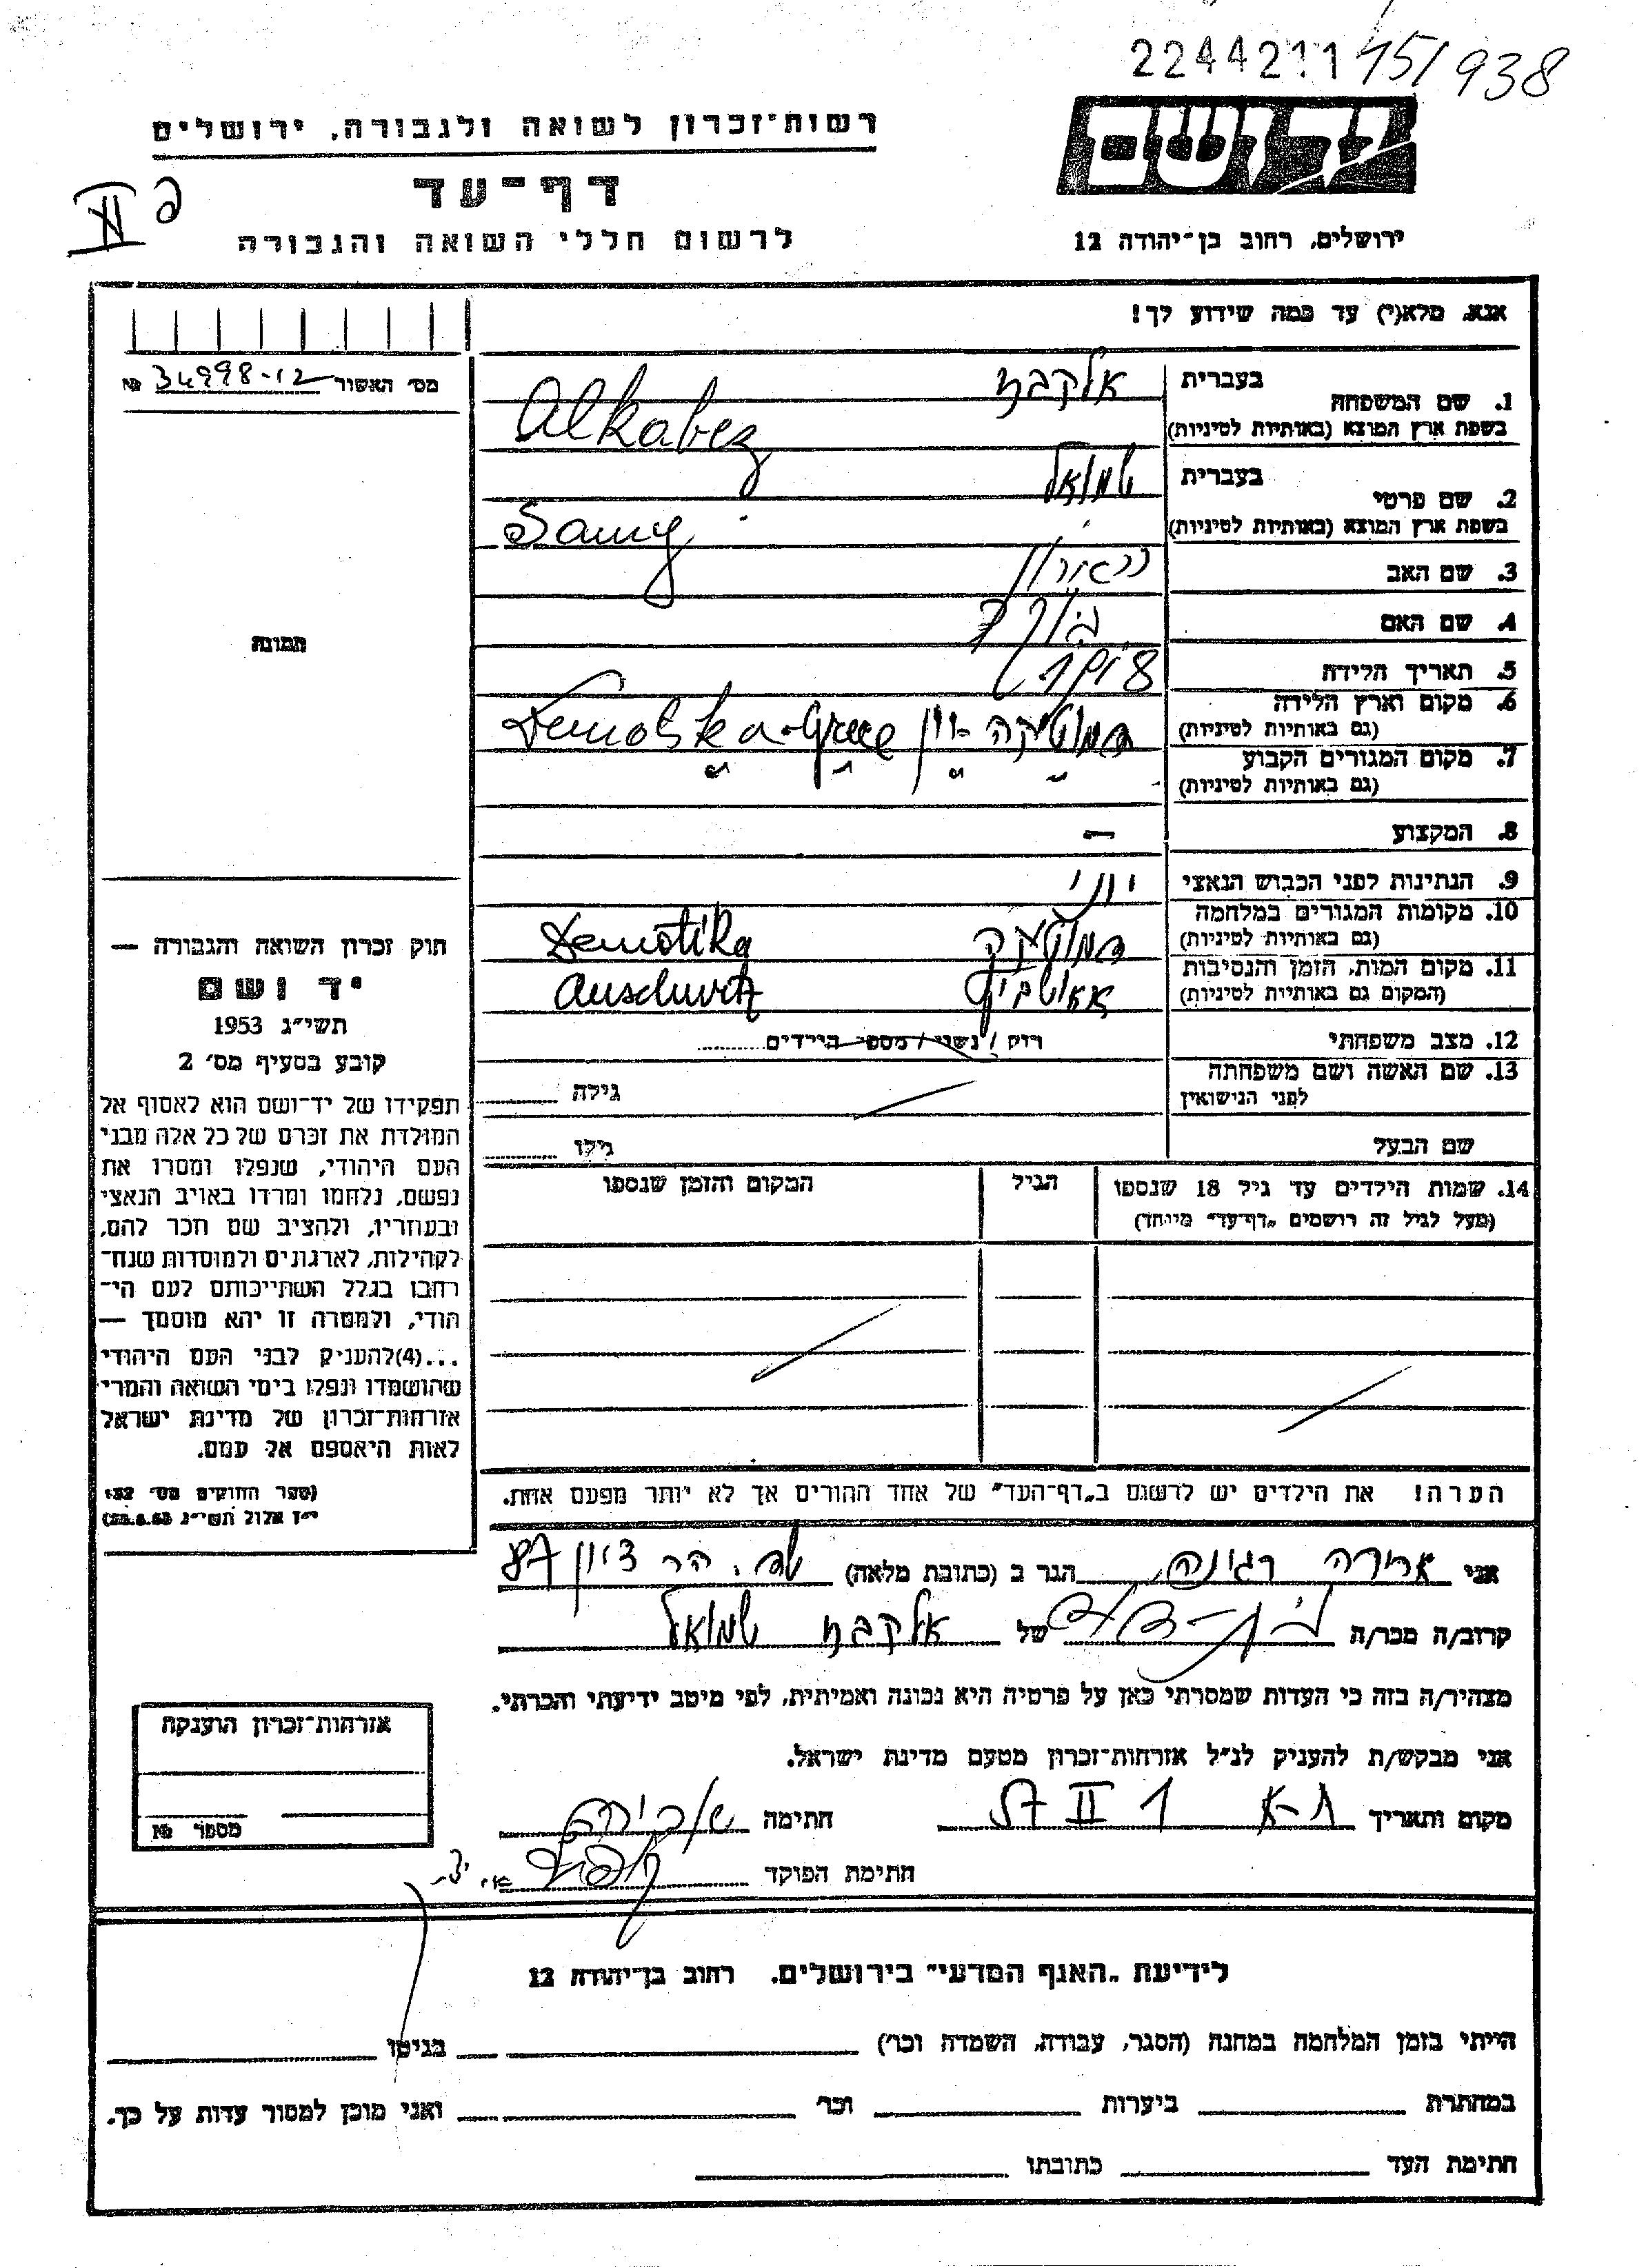 2244211 15/938
רשות־זכרון לשואה ולגבורה, ירושלים
דף־עד
לרשום חללי השואה והגבורה
ושם
ירושלים, רחוב בן־יהודה 12
אנא, מלא(י) עד כמה שידוע לך!
מס׳ האשור 34998-12 №
1. שם המשפחה בעברית אלקבץ
בשפת ארץ המוצא (באותיות לטיניות) Alkabez
2. שם פרטי בעברית שמואל
בשפת ארץ המוצא (באותיות לטיניות) Samy
3. שם האב
4. שם האם
5. תאריך הלידה
6. מקום וארץ הלידה
(גם באותיות לטיניות) דמוטיקה - יון Demotika-Grece
7. מקום המגורים הקבוע
(גם באותיות לטיניות)
8. המקצוע —
9. הנתינות לפני הכבוש הנאצי יוני
10. מקומות המגורים במלחמה
(גם באותיות לטיניות) דמוטיקה Demotika
11. מקום המות, הזמן והנסיבות
(המקום גם באותיות לטיניות) אאושביץ Auschwitz
12. מצב משפחתי רווק / נשוי / מספר הילדים
13. שם האשה ושם משפחתה גילה
לפני הנישואין
שם הבעל גילו
14. שמות הילדים עד גיל 18 שנספו הגיל המקום והזמן שנספו
(מעל לגיל זה רושמים „דף־עד״ מיוחד)
הערה! את הילדים יש לרשום ב„דף־העד״ של אחד ההורים אך לא יותר מפעם אחת.
תמונה
חוק זכרון השואה והגבורה —
יד ושם
תשי״ג 1953
קובע בסעיף מס׳ 2
תפקידו של יד־ושם הוא לאסוף אל
המולדת את זכרם של כל אלה מבני
העם היהודי, שנפלו ומסרו את
נפשם, נלחמו ומרדו באויב הנאצי
ובעוזריו, ולהציב שם וזכר להם,
לקהילות, לארגונים ולמוסדות שנח־
רבו בגלל השתייכותם לעם הי־
הודי, ולמטרה זו יהא מוסמך —
...(4)להעניק לבני העם היהודי
שהושמדו ונפלו בימי השואה והמרי
אזרחות־זכרון של מדינת ישראל
לאות היאספם אל עמם.
(ספר החוקים מס׳ 132,
י״ז אלול תשי״ג (28.8.53
אני רגינה, הגר ב (כתובת מלאה) הר ציון 87
קרוב/ה מכר/ה בת-דוד של אלקבץ שמואל
מצהיר/ה בזה כי העדות שמסרתי כאן על פרטיה היא נכונה ואמיתית, לפי מיטב ידיעתי והכרתי.
אני מבקש/ת להעניק לנ״ל אזרחות־זכרון מטעם מדינת ישראל.
מקום ותאריך ת-א 1 II 57 חתימה
חתימת הפוקד
אזרחות־זכרון הוענקה
מספר №
לידיעת „האגף המדעי״ בירושלים. רחוב בן־יהודה 12
הייתי בזמן המלחמה במחנה (הסגר, עבודה, השמדה וכר׳) בגיטו
במחתרת ביערות וכר׳ ואני מוכן למסור עדות על כך.
חתימת העד כתובתו